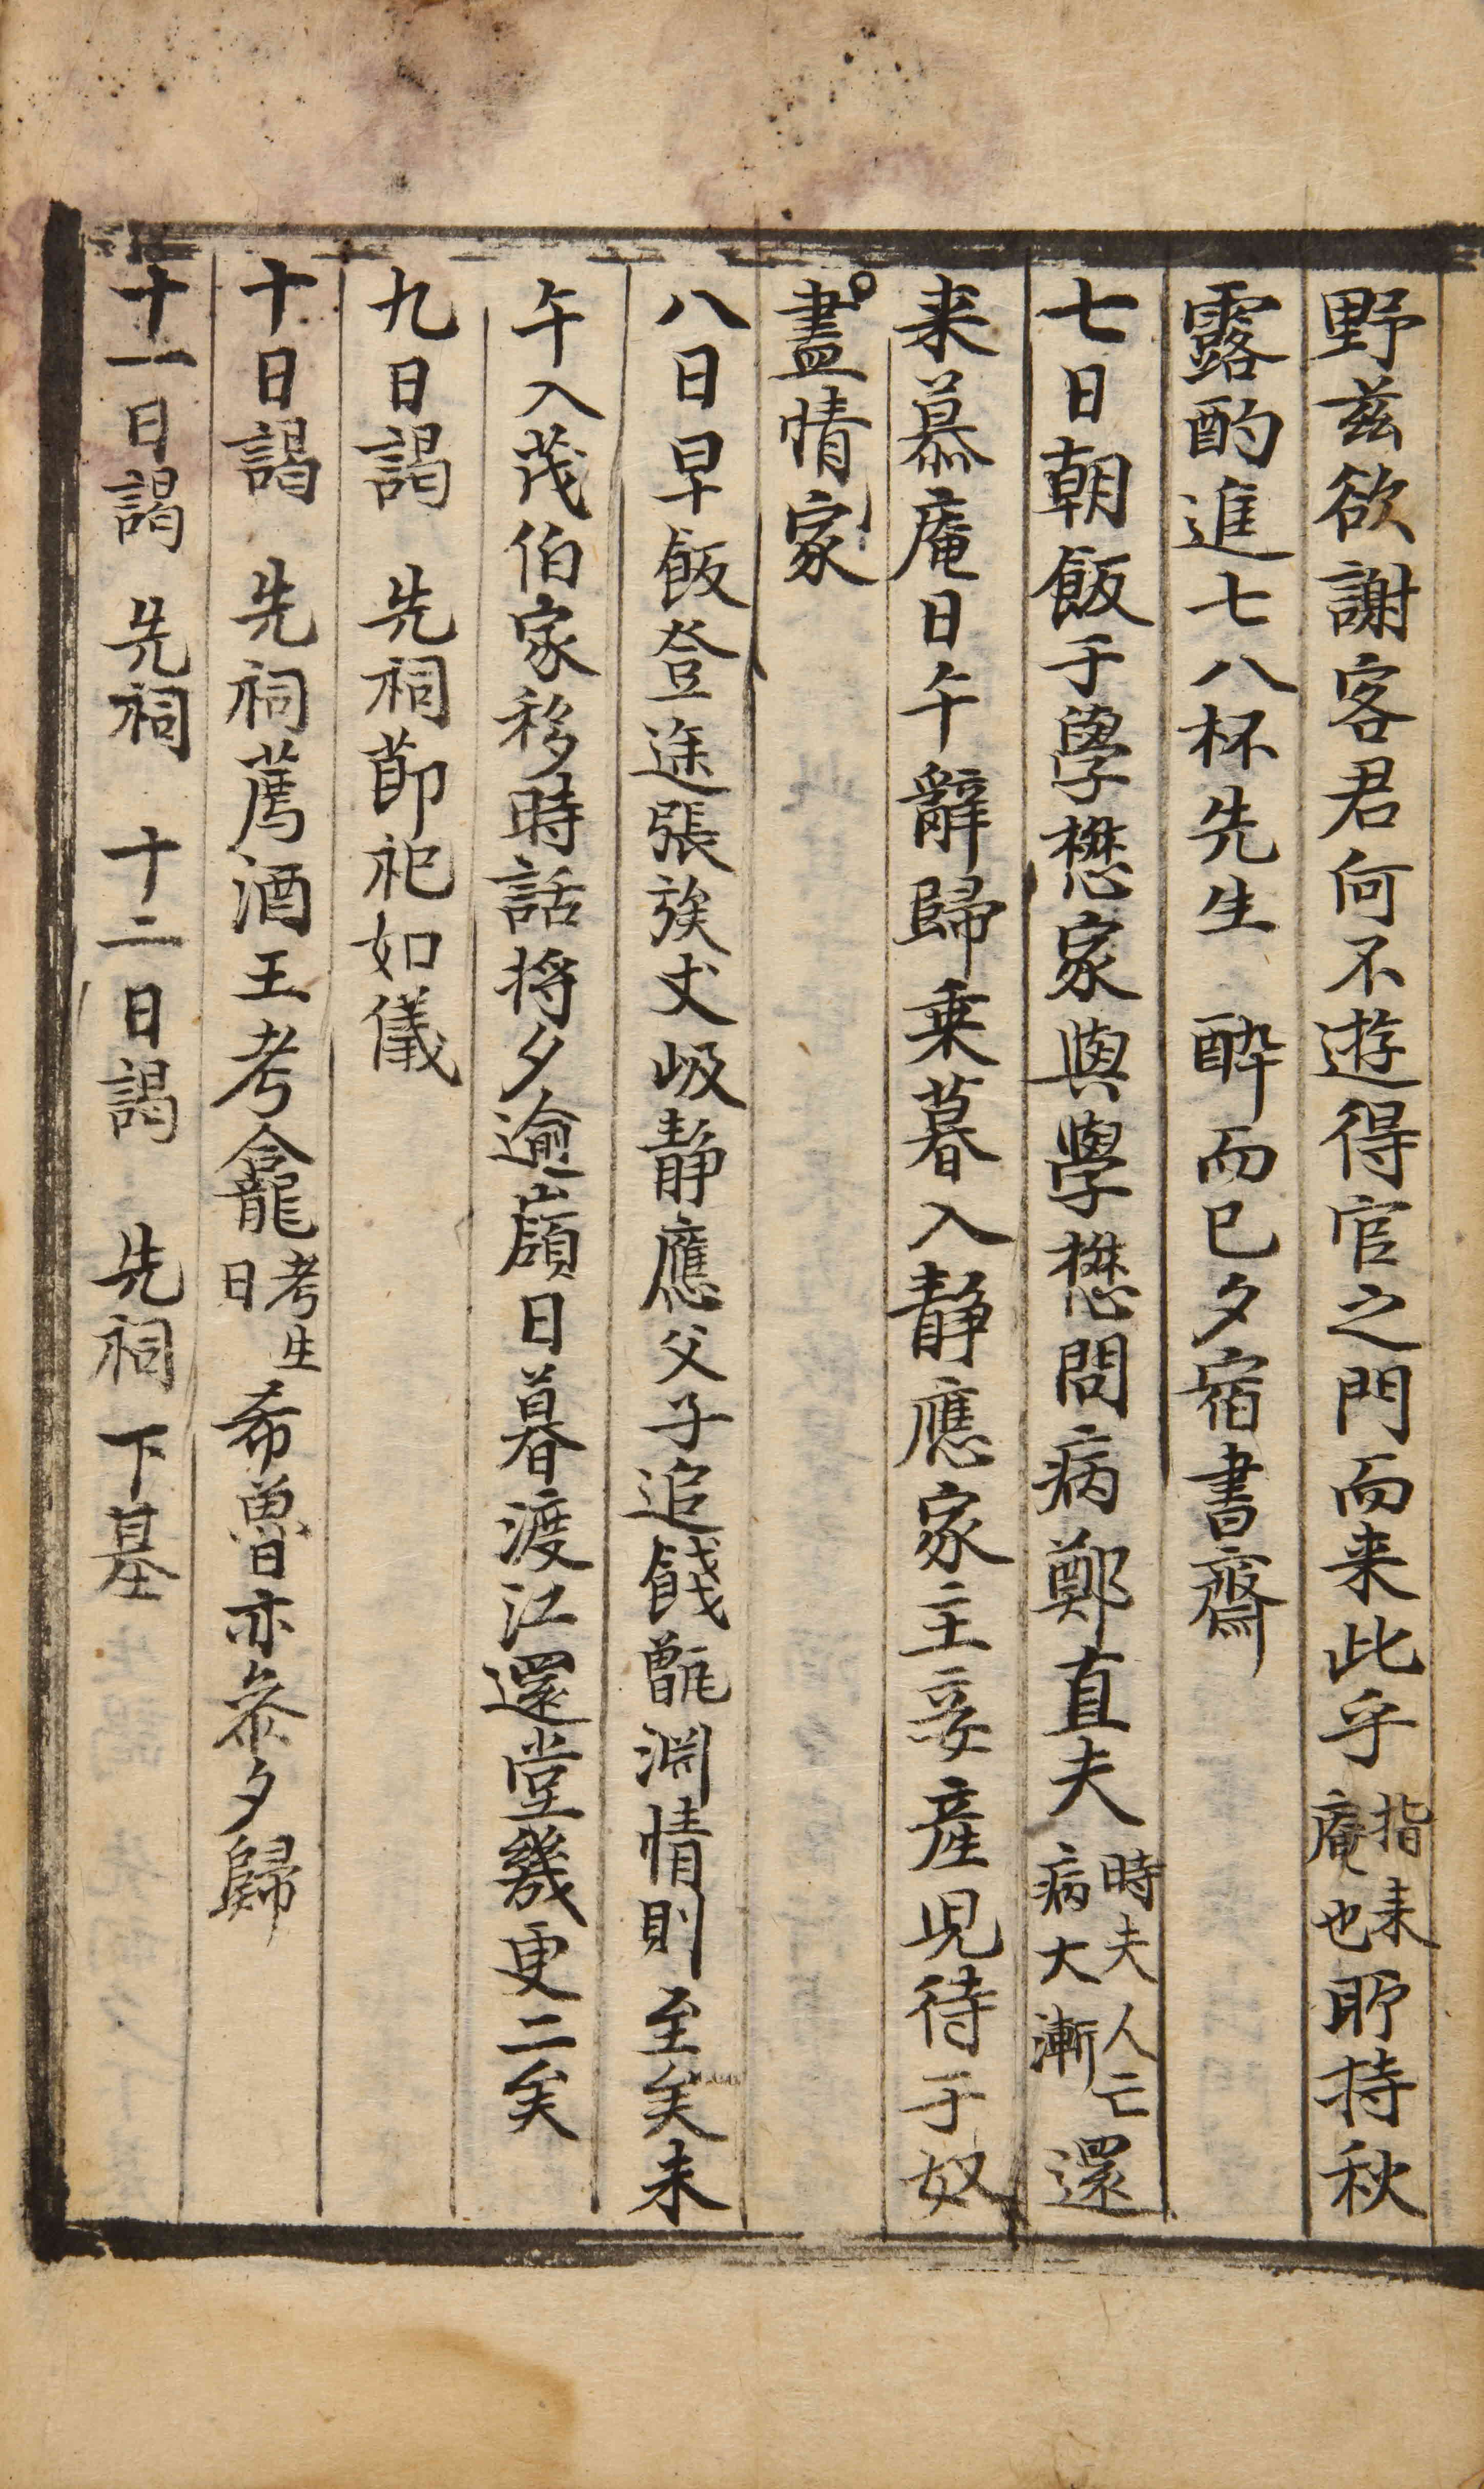 野玆欲謝客君何不遊得官之門而来此乎指来庵也所持秋
露酌進七八杯先生 酔而已夕宿書齋
七日朝飯于學懋家與學懋問病鄭直夫時夫人亡病大漸還
来慕庵日午辭歸乗暮入静應家主妾産児待于奴
盡情家
八日早飯登途張族丈岋静應父子追餞甑淵情則至矣未
午入茂伯家移時話将夕逾嶺日暮渡江還堂幾更二矣
九日謁 先祠莭祀如儀
十日謁 先祠薦酒王考龕考生日希魯亦叅夕歸
十一日謁 先祠 十二日謁 先祠下墓